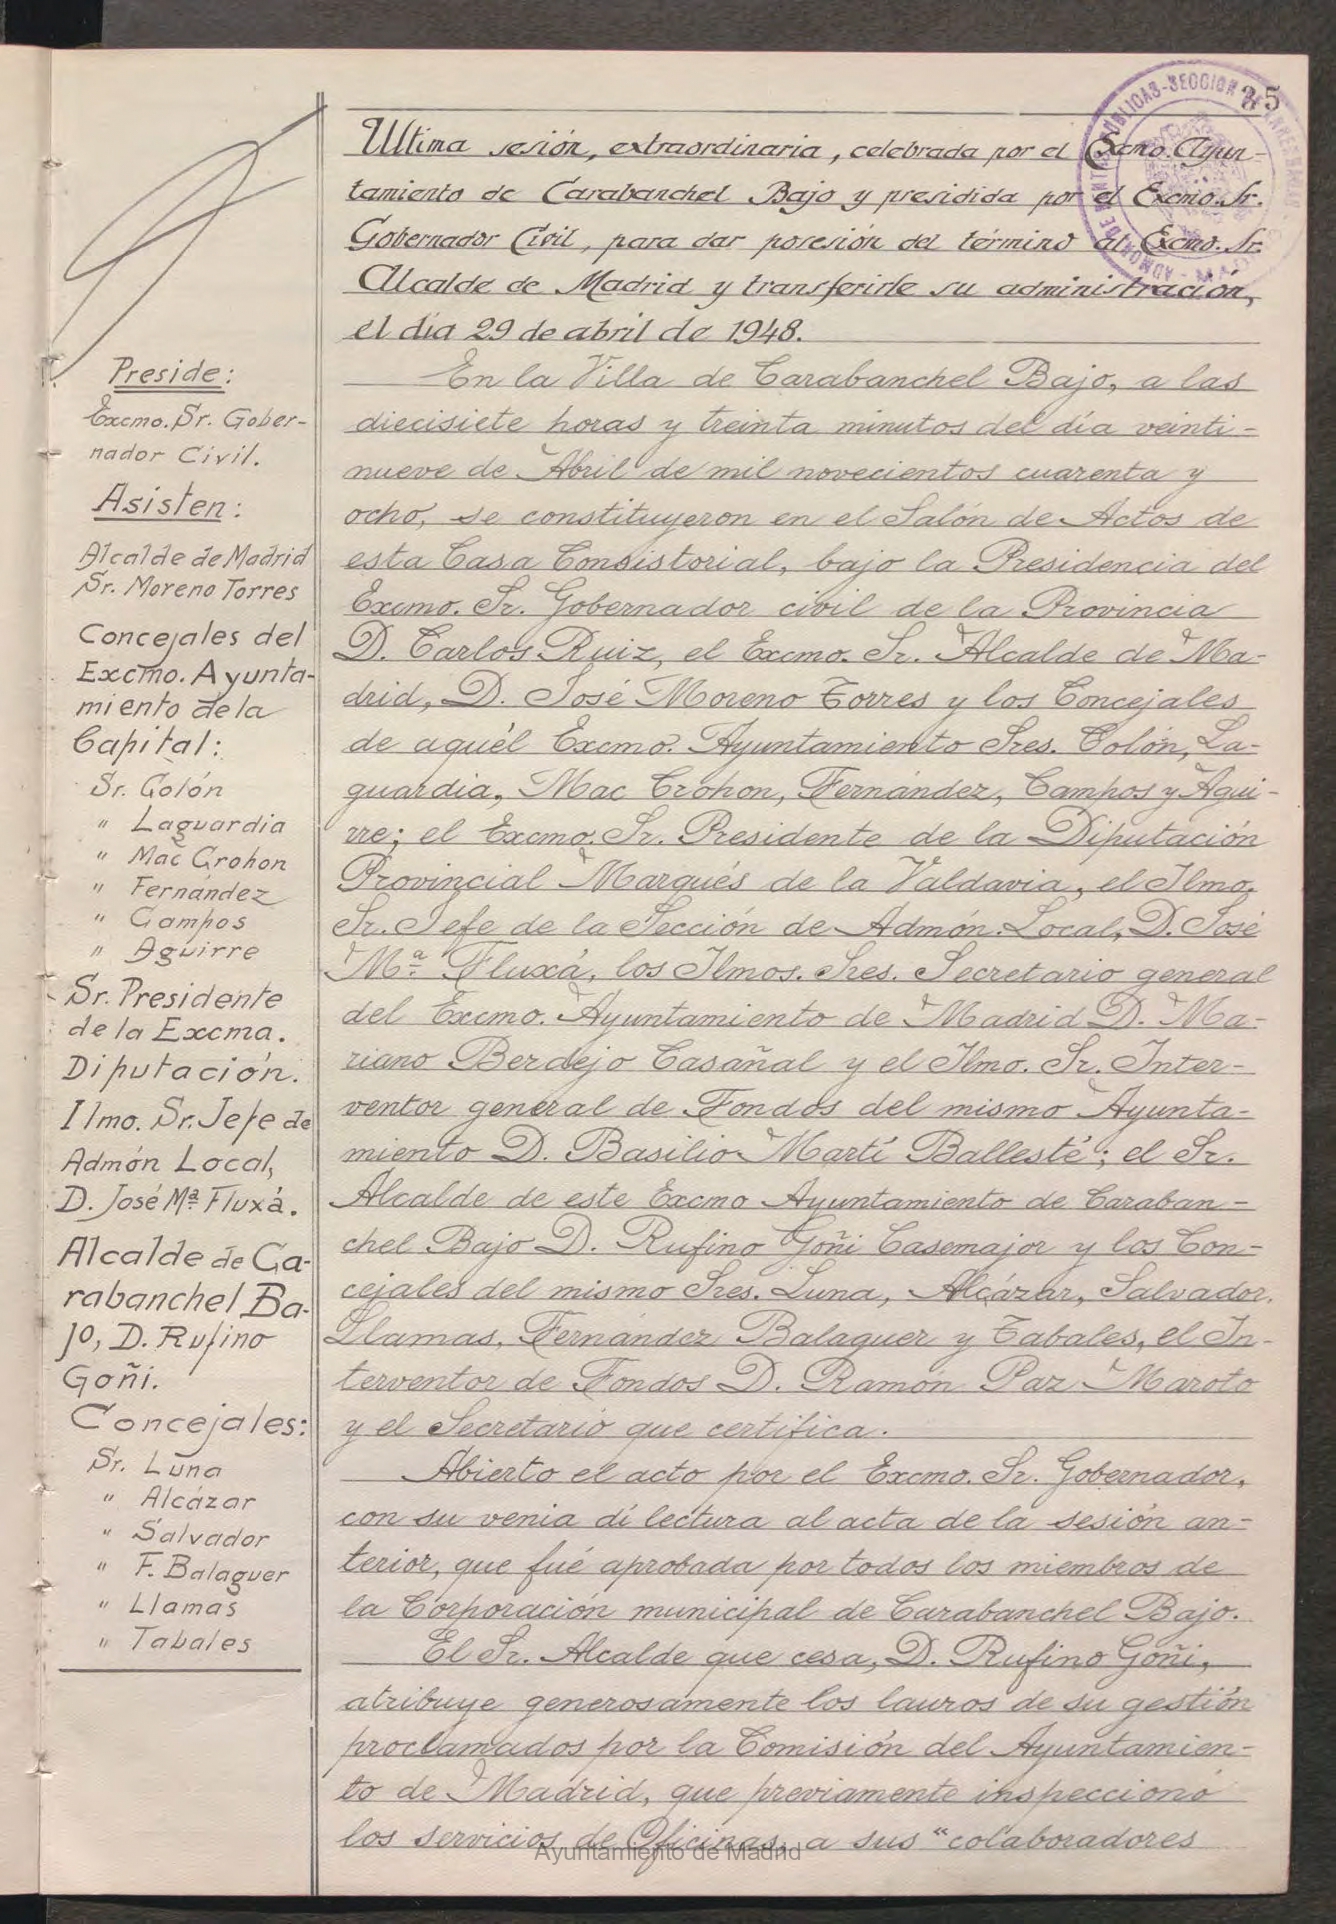 35
Ultima sesión, extraordinaria, celebrada por el Excmo. Ayun-
tamiento de Carabanchel Bajo y presidida por el Excmo. Sr.
Gobernador Civil, para dar posesión del término al Excmo. Sr.
Alcalde de Madrid y transferirle su administración,
el día 29 de abril de 1948.
Preside:
Excmo. Sr. Gober-
nador Civil.
Asisten:
Alcalde de Madrid
Sr. Moreno Torres
Concejales del
Excmo. Ayunta-
miento de la
Capital:
Sr. Colón
" Laguardia
" Mac Crohon
" Fernández
" Campos
" Aguirre
Sr. Presidente
de la Excma.
Diputación.
Ilmo. Sr. Jefe de
Admón Local,
D. José Mª Fluxá.
Alcalde de Ca-
rabanchel Ba-
jo, D. Rufino
Goñi.
Concejales:
Sr. Luna
" Alcázar
" Salvador
" F. Balaguer
" Llamas
" Tabales
En la Villa de Carabanchel Bajo, a las
diecisiete horas y treinta minutos del día veinti-
nueve de Abril de mil novecientos cuarenta y
ocho, se constituyeron en el Salón de Actos de
esta Casa Consistorial, bajo la Presidencia del
Excmo. Sr. Gobernador civil de la Provincia
D. Carlos Ruiz, el Excmo. Sr. Alcalde de Ma-
drid, D. José Moreno Torres y los Concejales
de aquél Excmo. Ayuntamiento Sres. Colón, La-
guardia, Mac Crohon, Fernández, Campos y Agui-
rre; el Excmo. Sr. Presidente de la Diputación
Provincial Marqués de la Valdavia, el Ilmo.
Sr. Jefe de la Sección de Admón. Local, D. José
Mª Fluxá, los Ilmos. Sres. Secretario general
del Excmo. Ayuntamiento de Madrid D. Ma-
riano Berdejo Casañal y el Ilmo. Sr. Inter-
ventor general de Fondos del mismo Ayunta-
miento D. Basilio Martí Ballesté; el Sr.
Alcalde de este Excmo Ayuntamiento de Caraban-
chel Bajo D. Rufino Goñi Casemajor y los Con-
cejales del mismo Sres. Luna, Alcázar, Salvador,
Llamas, Fernández Balaguer y Tabales, el In-
terventor de Fondos D. Ramón Paz Maroto
y el Secretario que certifica.
Abierto el acto por el Excmo. Sr. Gobernador,
con su venia dí lectura al acta de la sesión an-
terior, que fué aprobada por todos los miembros de
la Corporación municipal de Carabanchel Bajo.
El Sr. Alcalde que cesa, D. Rufino Goñi,
atribuye generosamente los lauros de su gestión
proclamados por la Comisión del Ayuntamien-
to de Madrid, que previamente inspeccionó
los servicios de Oficinas, a sus "colaboradores
Ayuntamiento de Madrid